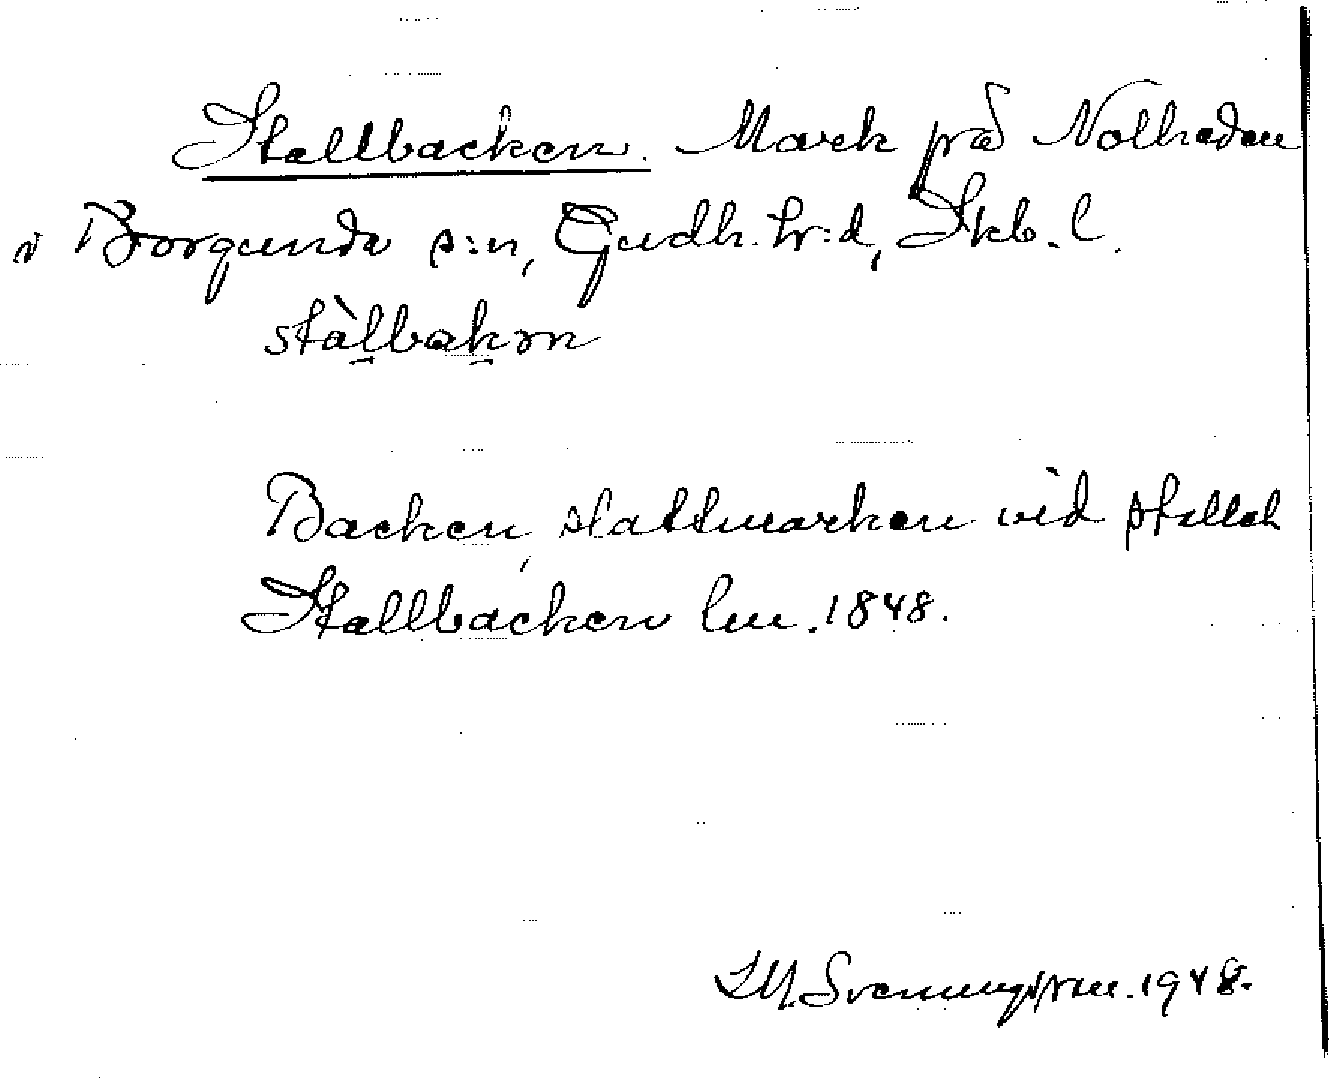 Stallbacken. Mark på Nolheden
i Borgunda s:n, Gudh. hr:d, Skb. l.
stàlbakən
Backen, slåttmarken vid stallet
Stallbacken lm. 1848.
S. M. Svenningsson. 1948.